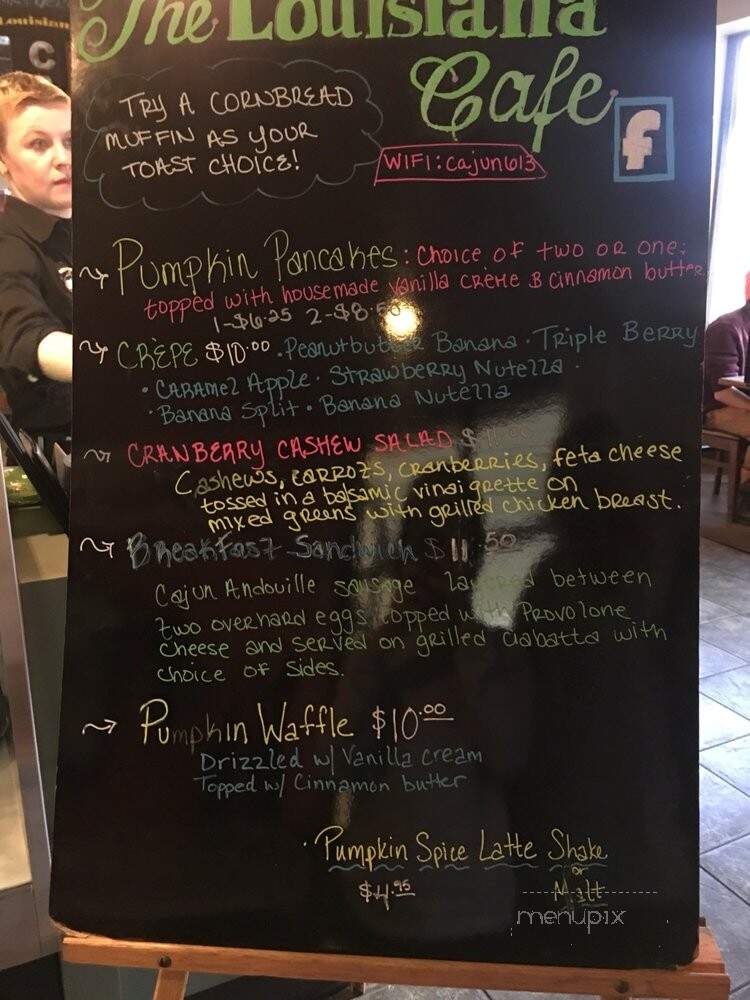 The Louisiana
Cafe
TRY A CORNBREAD
MUFFIN AS YOUR
TOAST CHOICE!
f
WIFI: cajun613
C
Pumpkin Pancakes: Choice of two or one;
topped with housemade vanilla crème & cinnamon butter
1-$6.25 2-$8.50
CRÈPE $10.00 • Peanutbutter Banana • Triple Berry
• Caramel Apple • Strawberry Nutella •
• Banana Split • Banana Nutella
CRANBERRY CASHEW SALAD $
Cashews, carrots, cranberries, feta cheese
tossed in a balsamic vinaigrette on
mixed greens with grilled chicken breast.
Breakfast Sandwich $11.50
Cajun Andouille sausage layered between
two overhard eggs topped with Provolone
cheese and served on grilled ciabatta with
choice of sides.
Pumpkin Waffle $10.00
Drizzled w/ Vanilla cream
Topped w/ Cinnamon butter
• Pumpkin Spice Latte Shake
or
$4.95 Malt
menupix